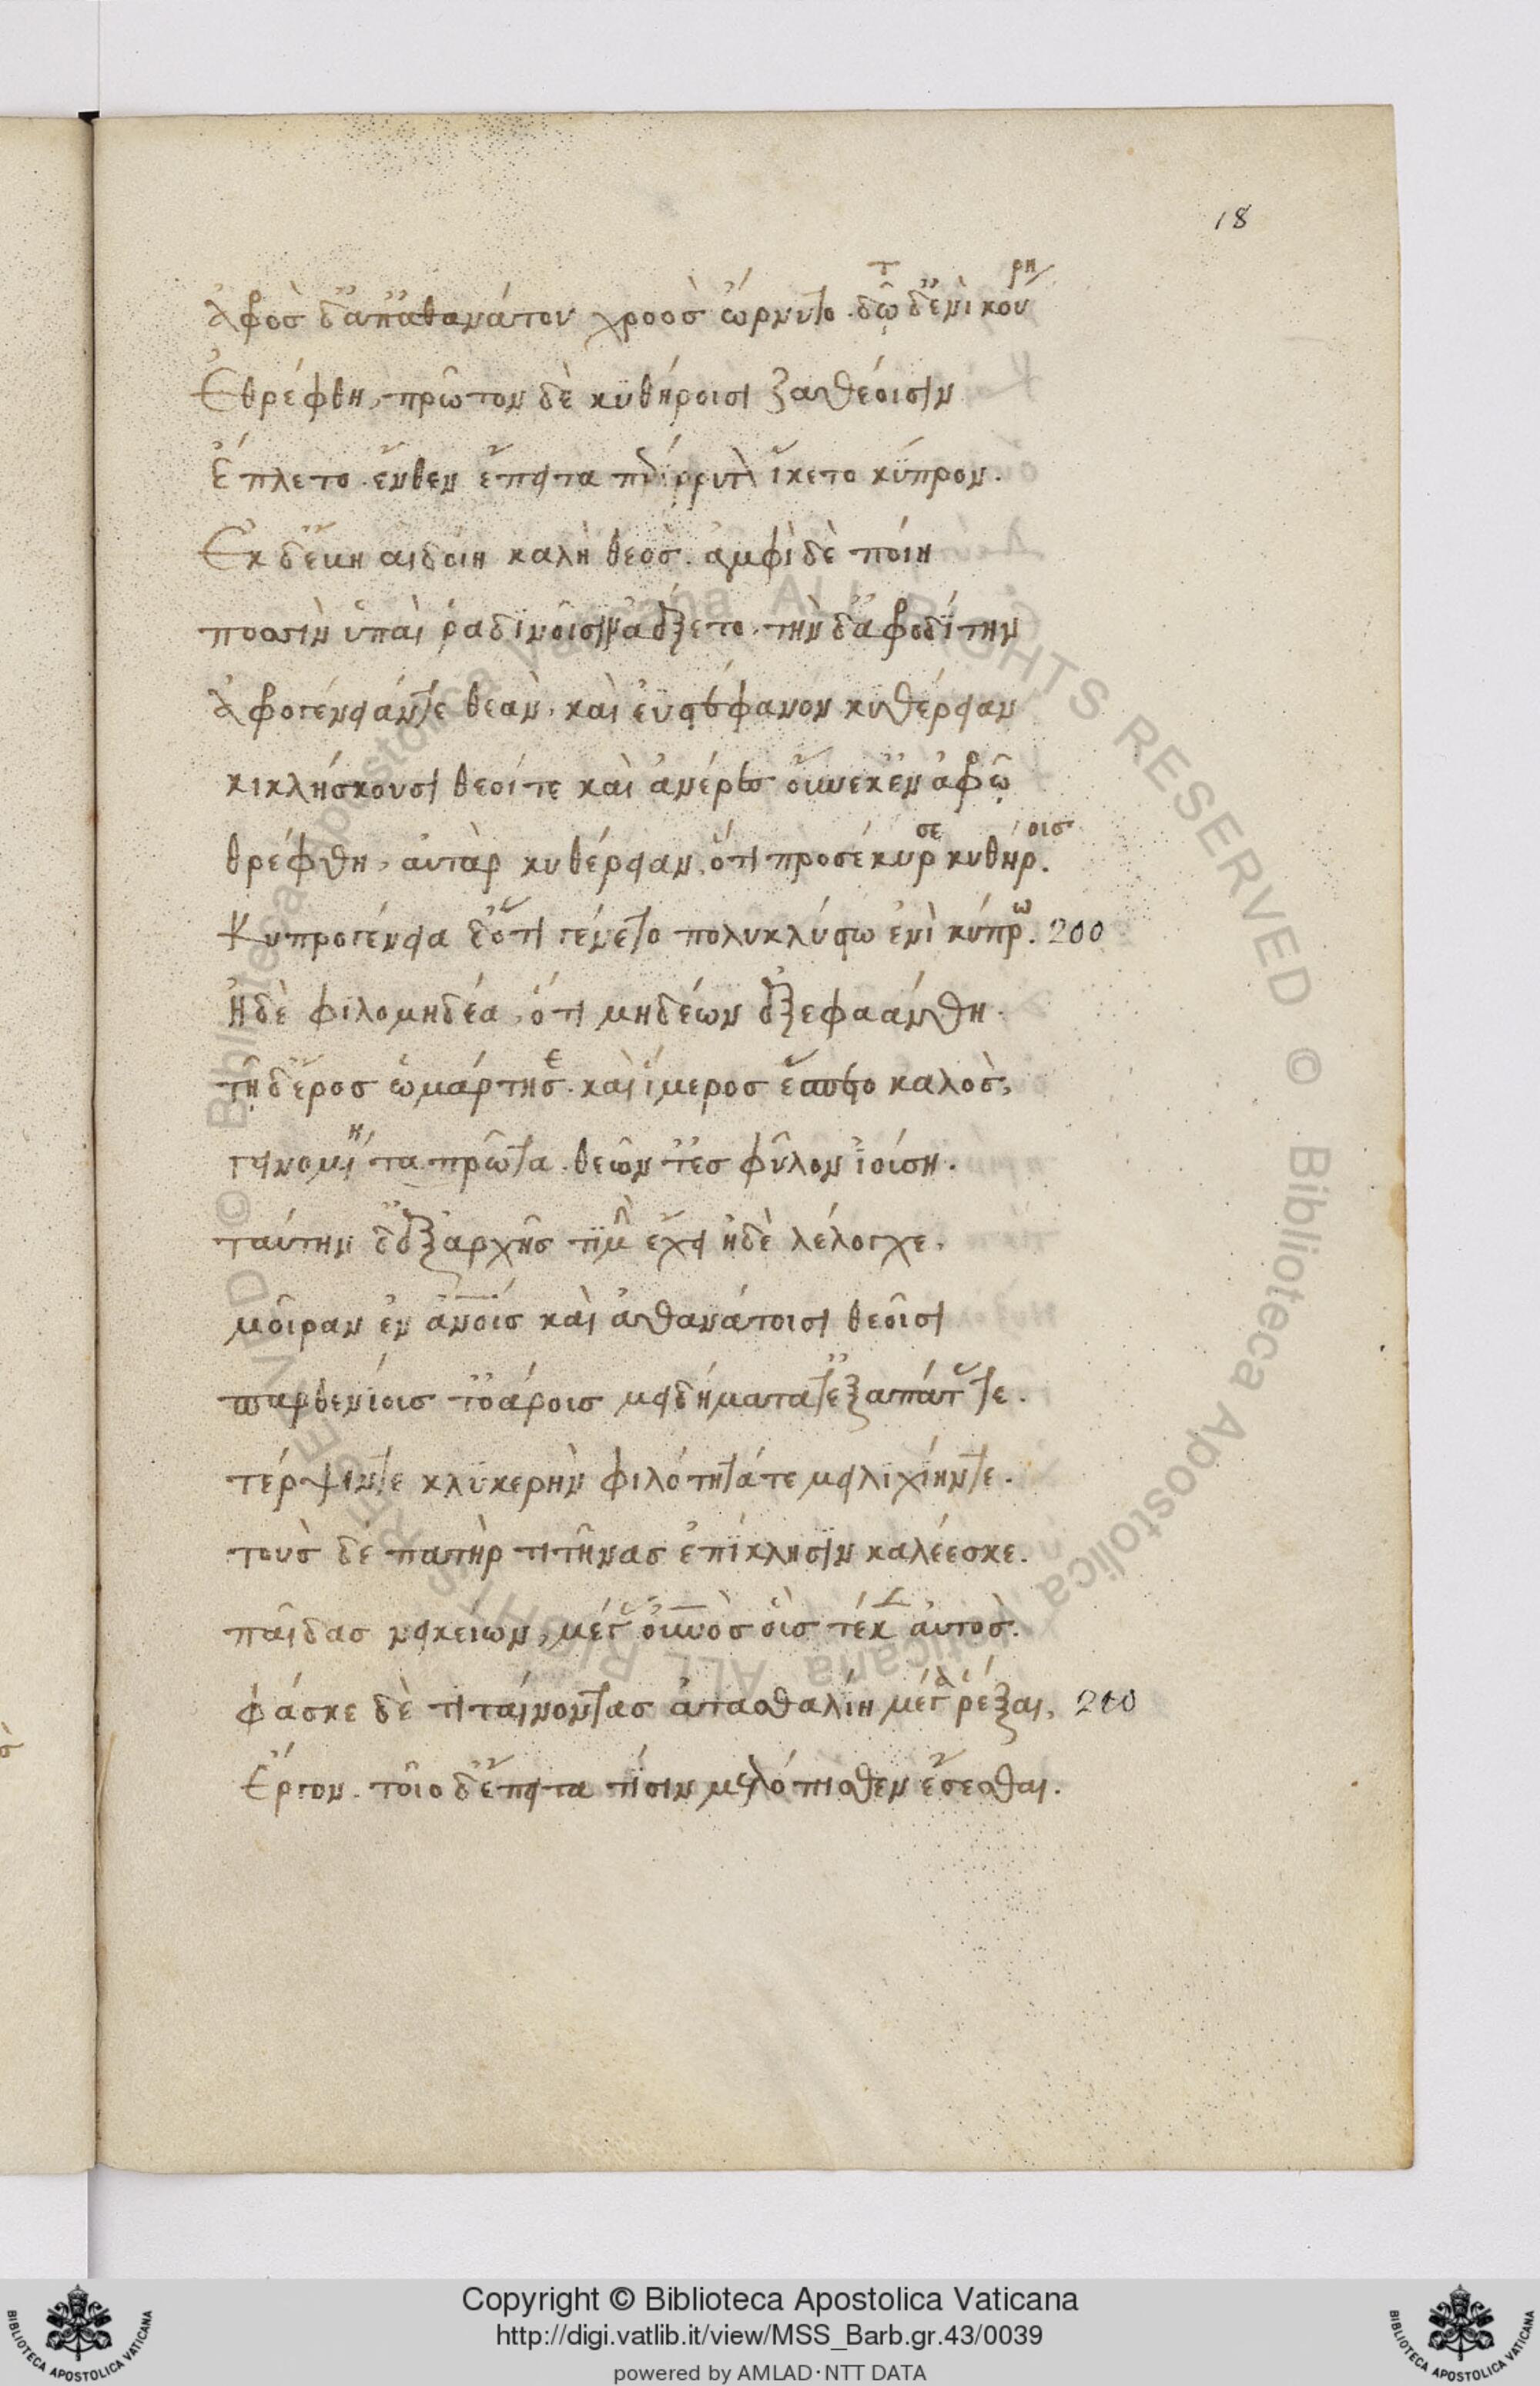 18
ἀφρὸσ δ' ἀπ' ἀθανάτου χροὸσ ὤρνυτο. τῶ δ' ἐνὶ κούρη
Ἐθρέφθη, πρῶτον δὲ κϋθήροισι ζαθέοισιν
Ἔπλετο. ἔνθεν ἔπειτα περίρρυτὸν ἵκετο κύπρον.
Ἐκ δ' ἔβη αιδοίη καλὴ θεὸσ. ἀμφὶ δὲ ποίη
ποσσὶν ὑπαὶ ῥαδϊνοῖσιν ἀέξετο. τὴν δ' ἀφροδίτην
Ἀφρογένειάν τε θεὰν, καὶ ἐϋστέφανον κυθέρειαν
κικλήσκουσι θεοί τε καὶ ἀνέρεσ οὕνεκ' ἐν ἀφρῶ
θρέφθη, ἀυτὰρ κυθέρειαν, ὅτι προσέκυρσε κυθήροισ.
Κυπρογένεια δ' ὅτι γένετο πολυκλύστω ἐνὶ κύπρω. 200
Ἠδὲ φιλομηδέα, ὅτι μηδέων ἐξεφαάνθη.
τῆ δ' ἔροσ ὡμάρτησε. καὶ ἵμεροσ ἕσπετο καλὸσ,
γεινομένη τα πρῶτα. θεῶν τ' ἐσ φῦλον ἰούση.
ταύτην δ' ἐξ ἀρχῆσ τϊμὴν ἔχει ἠδὲ λέλογχε,
μοῖραν ἐν ἀνοίσ καὶ ἀθανάτοισι θεοῖσι
παρθενίουσ τ' ὀάρουσ μειδήματα τ' ἐξαπάτασ τε.
τέρψιν τε κλϋκερὴν φιλότητά τε μειλϊχίην τε.
τοὺσ δὲ πατὴρ τιτῆνασ ἐπϊκλησϊν καλέεσκε.
παῖδασ νεικείων, μέγασ οὐνὸσ οὓσ τέκεν ἀυτὸσ.
φάσκε δὲ τιταίνοντασ ἀτασθαλίη μέγα ῥέξαι, 210
Ἔργον. τοῖο δ' ἔπειτα τίσιν μετόπισθεν ἔσεσθαι.
Copyright © Biblioteca Apostolica Vaticana
http://digi.vatlib.it/view/MSS_Barb.gr.43/0039
powered by AMLAD·NTT DATA
BIBLIOTECA APOSTOLICA VATICANA
BIBLIOTECA APOSTOLICA VATICANA
Biblioteca Apostolica Vaticana ALL RIGHTS RESERVED ©
Biblioteca Apostolica Vaticana ALL RIGHTS RESERVED ©